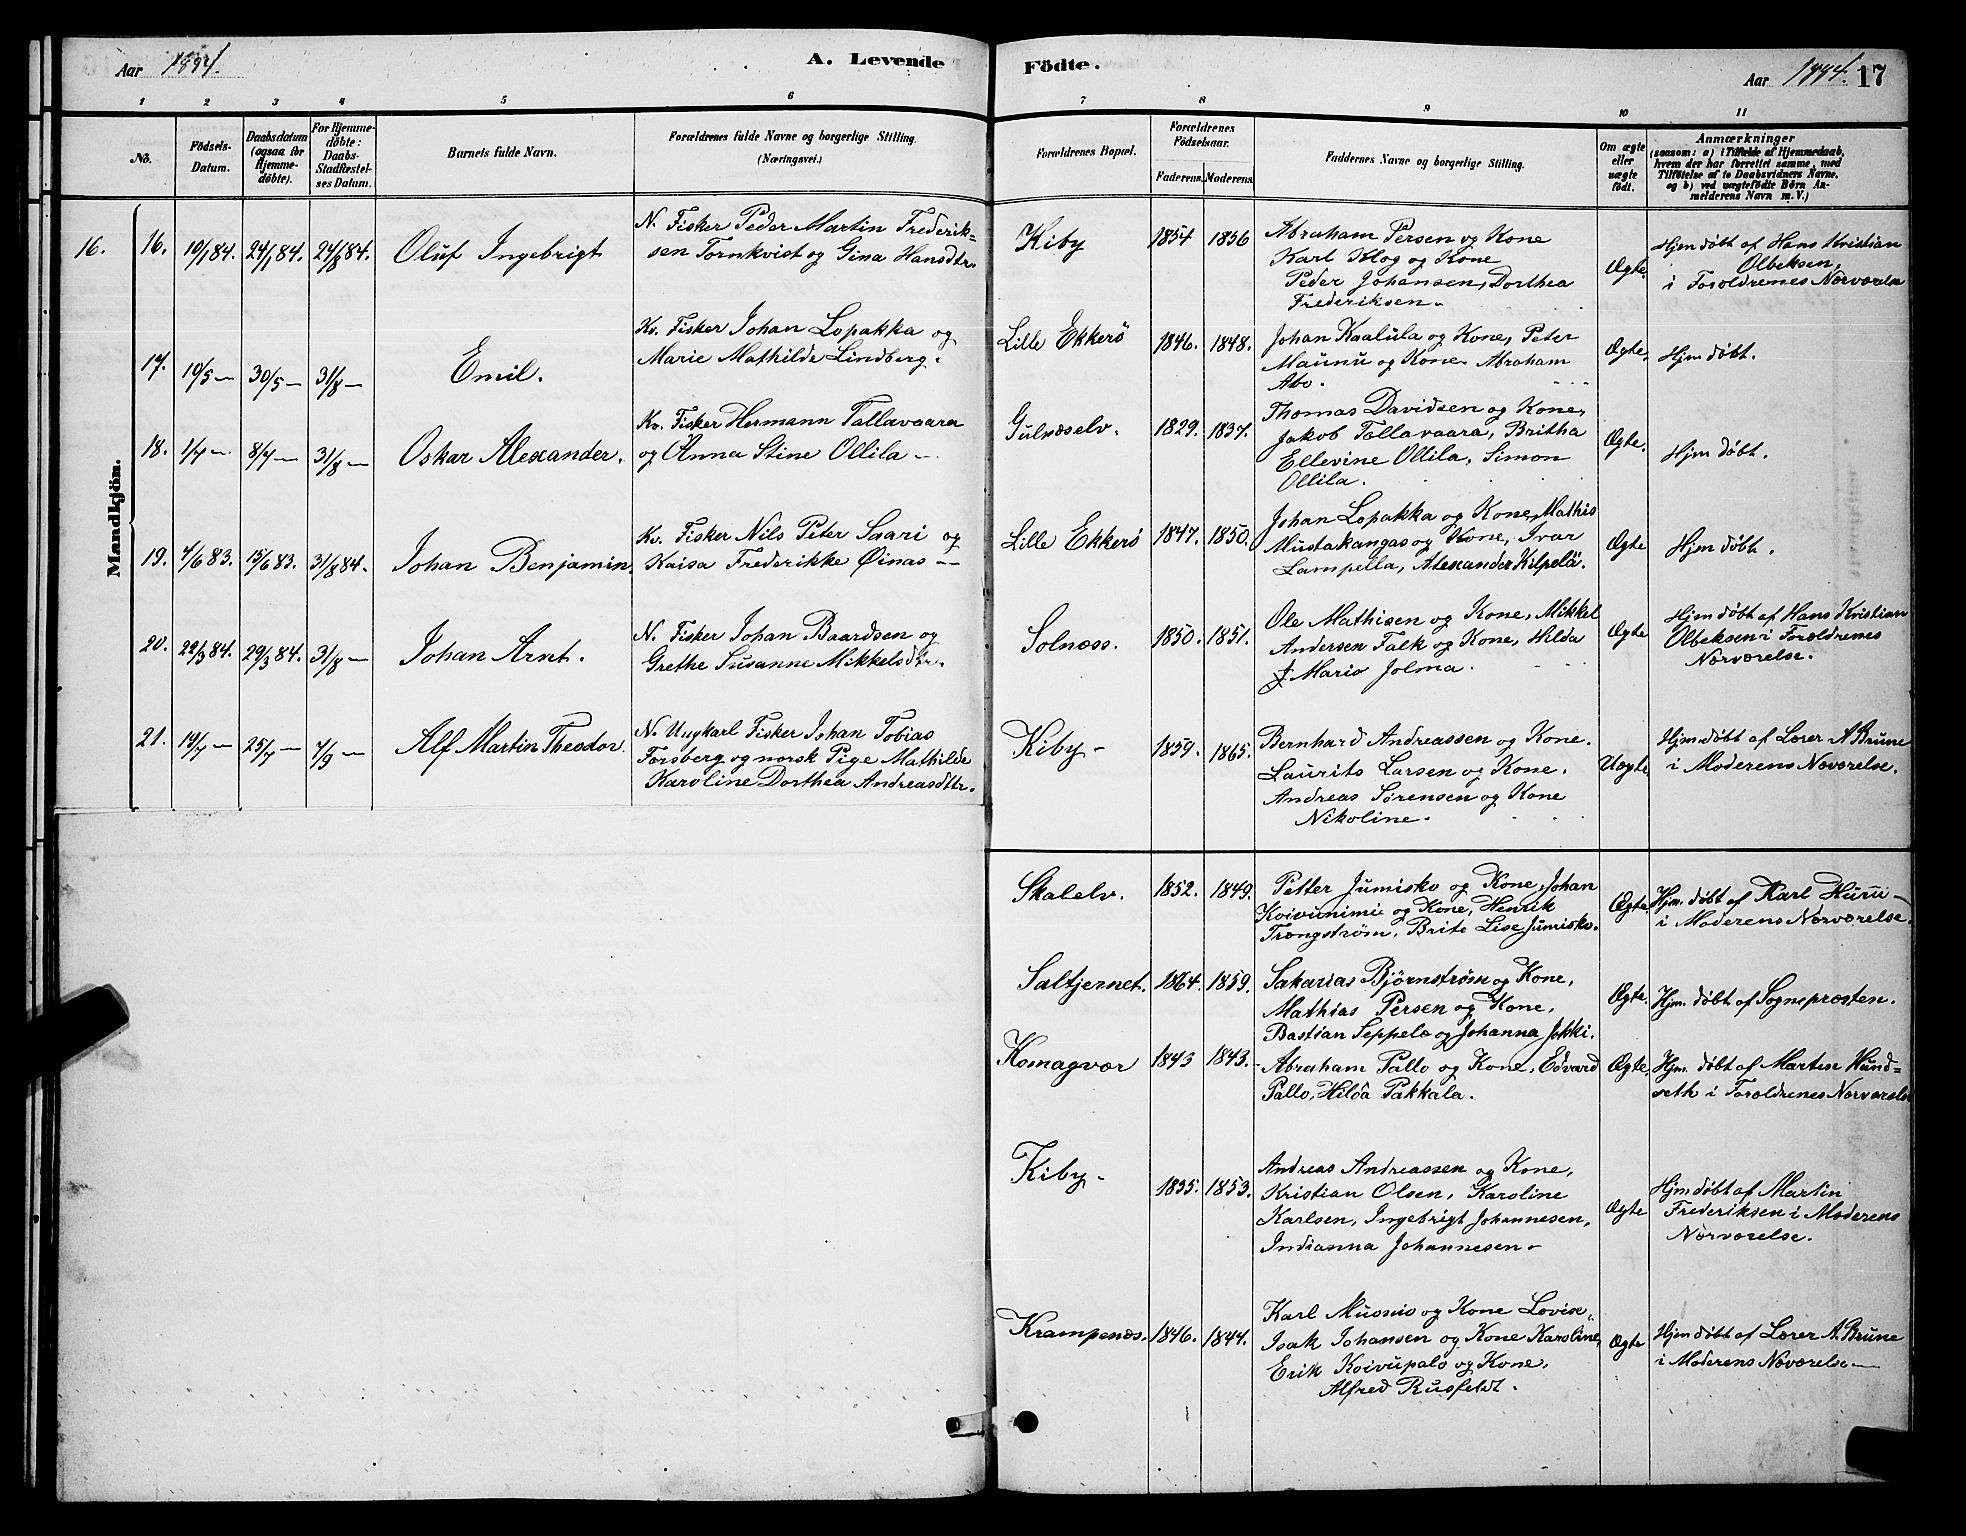 Aar 1884.
A. Levende
1 2 3 4 5 6
No.
Födsels-
Datum.
Daabsdatum
(ogsaa for
Hjemme-
döbte).
For Hjemme-
döbte:
Daabs-
Stadfæstel-
ses Datum.
Barnets fulde Navn.
Forældrenes fulde Navne og borgerlige Stilling.
(Næringsvei.)
Mandkjön.
16. 16. 10/1 84. 24/1 84. 24/8 84. Oluf Ingebrigt
N. Fisker Peder Martin Frederik-
sen Tornkvist og Gina Hansdtr.
17. 10/5 — 30/5 — 31/8 — Emil.
Kv. Fisker Johan Lopakka og
Marie Mathilde Lindberg.
18. 1/7 — 8/7 — 31/8 — Oskar Alexander.
Kv. Fisker Hermann Tallavaara
og Anna Stine Ollila —
19. 4/6 83. 15/6 83. 31/8 84. Johan Benjamin.
Kv. Fisker Nils Peter Saari og
Kaisa Frederikke Øinas —
20. 22/3 84. 29/3 84. 31/8 — Johan Arnt.
N. Fisker Johan Baardsen og
Grethe Susanne Mikkelsdtr.
21. 19/7 — 25/7 — 7/9 — Alf Martin Theodor.
N. Ungkarl Fisker Johan Tobias
Forsberg og norsk Pige Mathilde
Karoline Dorthea Andreasdttr.
Födte.
Aar 1884. 17
7 8 9 10 11
Forældrenes Bopæl.
Forældrenes
Födselsaar.
Faderens. Moderens.
Faddernes Navne og borgerlige Stilling.
Om ægte
eller
uægte
födt.
Anmærkninger
(saasom: a) i Tilfælde af Hjemmedaab,
hvem der har forrettet samme, med
Tilföielse af to Daabsvidners Navne,
og b) ved uægtefödte Börn An-
melderens Navn m. V.)
Kiby 1854 1856
Abraham Persen og Kone
Karl Klog og Kone
Peder Johansen, Dorthea
Frederiksen.
Ægte.
Hjm døbt af Hans Kristian
Olbeksen,
i Foroldrenes Nærværelse
Lille Ekkerö 1846. 1848.
Johan Kaalula og Kone, Peter
Maunu og Kone. Abraham
Abo.
Ægte.
Hjm døbt.
Gulnæselv. 1829. 1837.
Thomas Davidsen og Kone,
Jakob Tallavaara, Britha
Ellevine Ollila, Simon
Ollila.
Ægte.
Hjm døbt.
Lille Ekkerö 1847. 1850.
Johan Lopakka og Kone, Mathis
Mustakangas og Kone, Ivar
Lampella, Alexander Kilpelä.
Ægte
Hjm døbt.
Solnæss. 1850. 1851.
Ole Mathisen og Kone, Mikkel
Andersen Falk og Kone, Hilda
Maria Jolma.
Ægte
Hjm døbt af Hans Kristian
Olbeksen i Foroldrenes
Nærværelse.
Kiby — 1859. 1865.
Bernhard Andreassen og Kone.
Laurits Larsen og Kone.
Andreas Sørensen og Kone
Nikoline.
Uægte
Hjm døbt af Lærer A Brune
i Moderens Nærværelse.
Skalelv. 1852. 1849.
Petter Jumisko og Kone, Johan
Koivunimi og Kone, Henrik
Trængstrøm, Brite Lise Jumisko.
Ægte.
Hjm. døbt af Karl Huru —
i Moderens Nærværelse.
Saltjernet. 1864. 1859.
Sakarias Bjørnstrøm og Kone,
Mathias Persen og Kone,
Bastian Seppelo og Johanna Jokki.
Ægte.
Hjm. døbt af Sogneprosten.
Komagvær 1843 1843.
Abraham Pallo og Kone, Edvard
Pallo, Hilda Pakkala.
Ægte.
Hjm. døbt af Martin Hund=
seth i Foroldrenes Nærværelse
Kiby — 1835. 1853.
Andreas Andreassen og Kone,
Kristian Olsen, Karoline
Karlsen, Ingebrigt Johannesen,
Indianna Johannesen —
Ægte
Hjm døbt af Martin
Frederiksen i Moderens
Nærværelse.
Krampenæs. 1846. 1844.
Karl Musnis og Kone Lovise,
Isak Johansen og Kone Karoline,
Erik Koivupalo og Kone,
Alfred Rusfeldt.
Ægte
Hjm døbt af Lærer A. Brune
i Moderens Nærværelse —